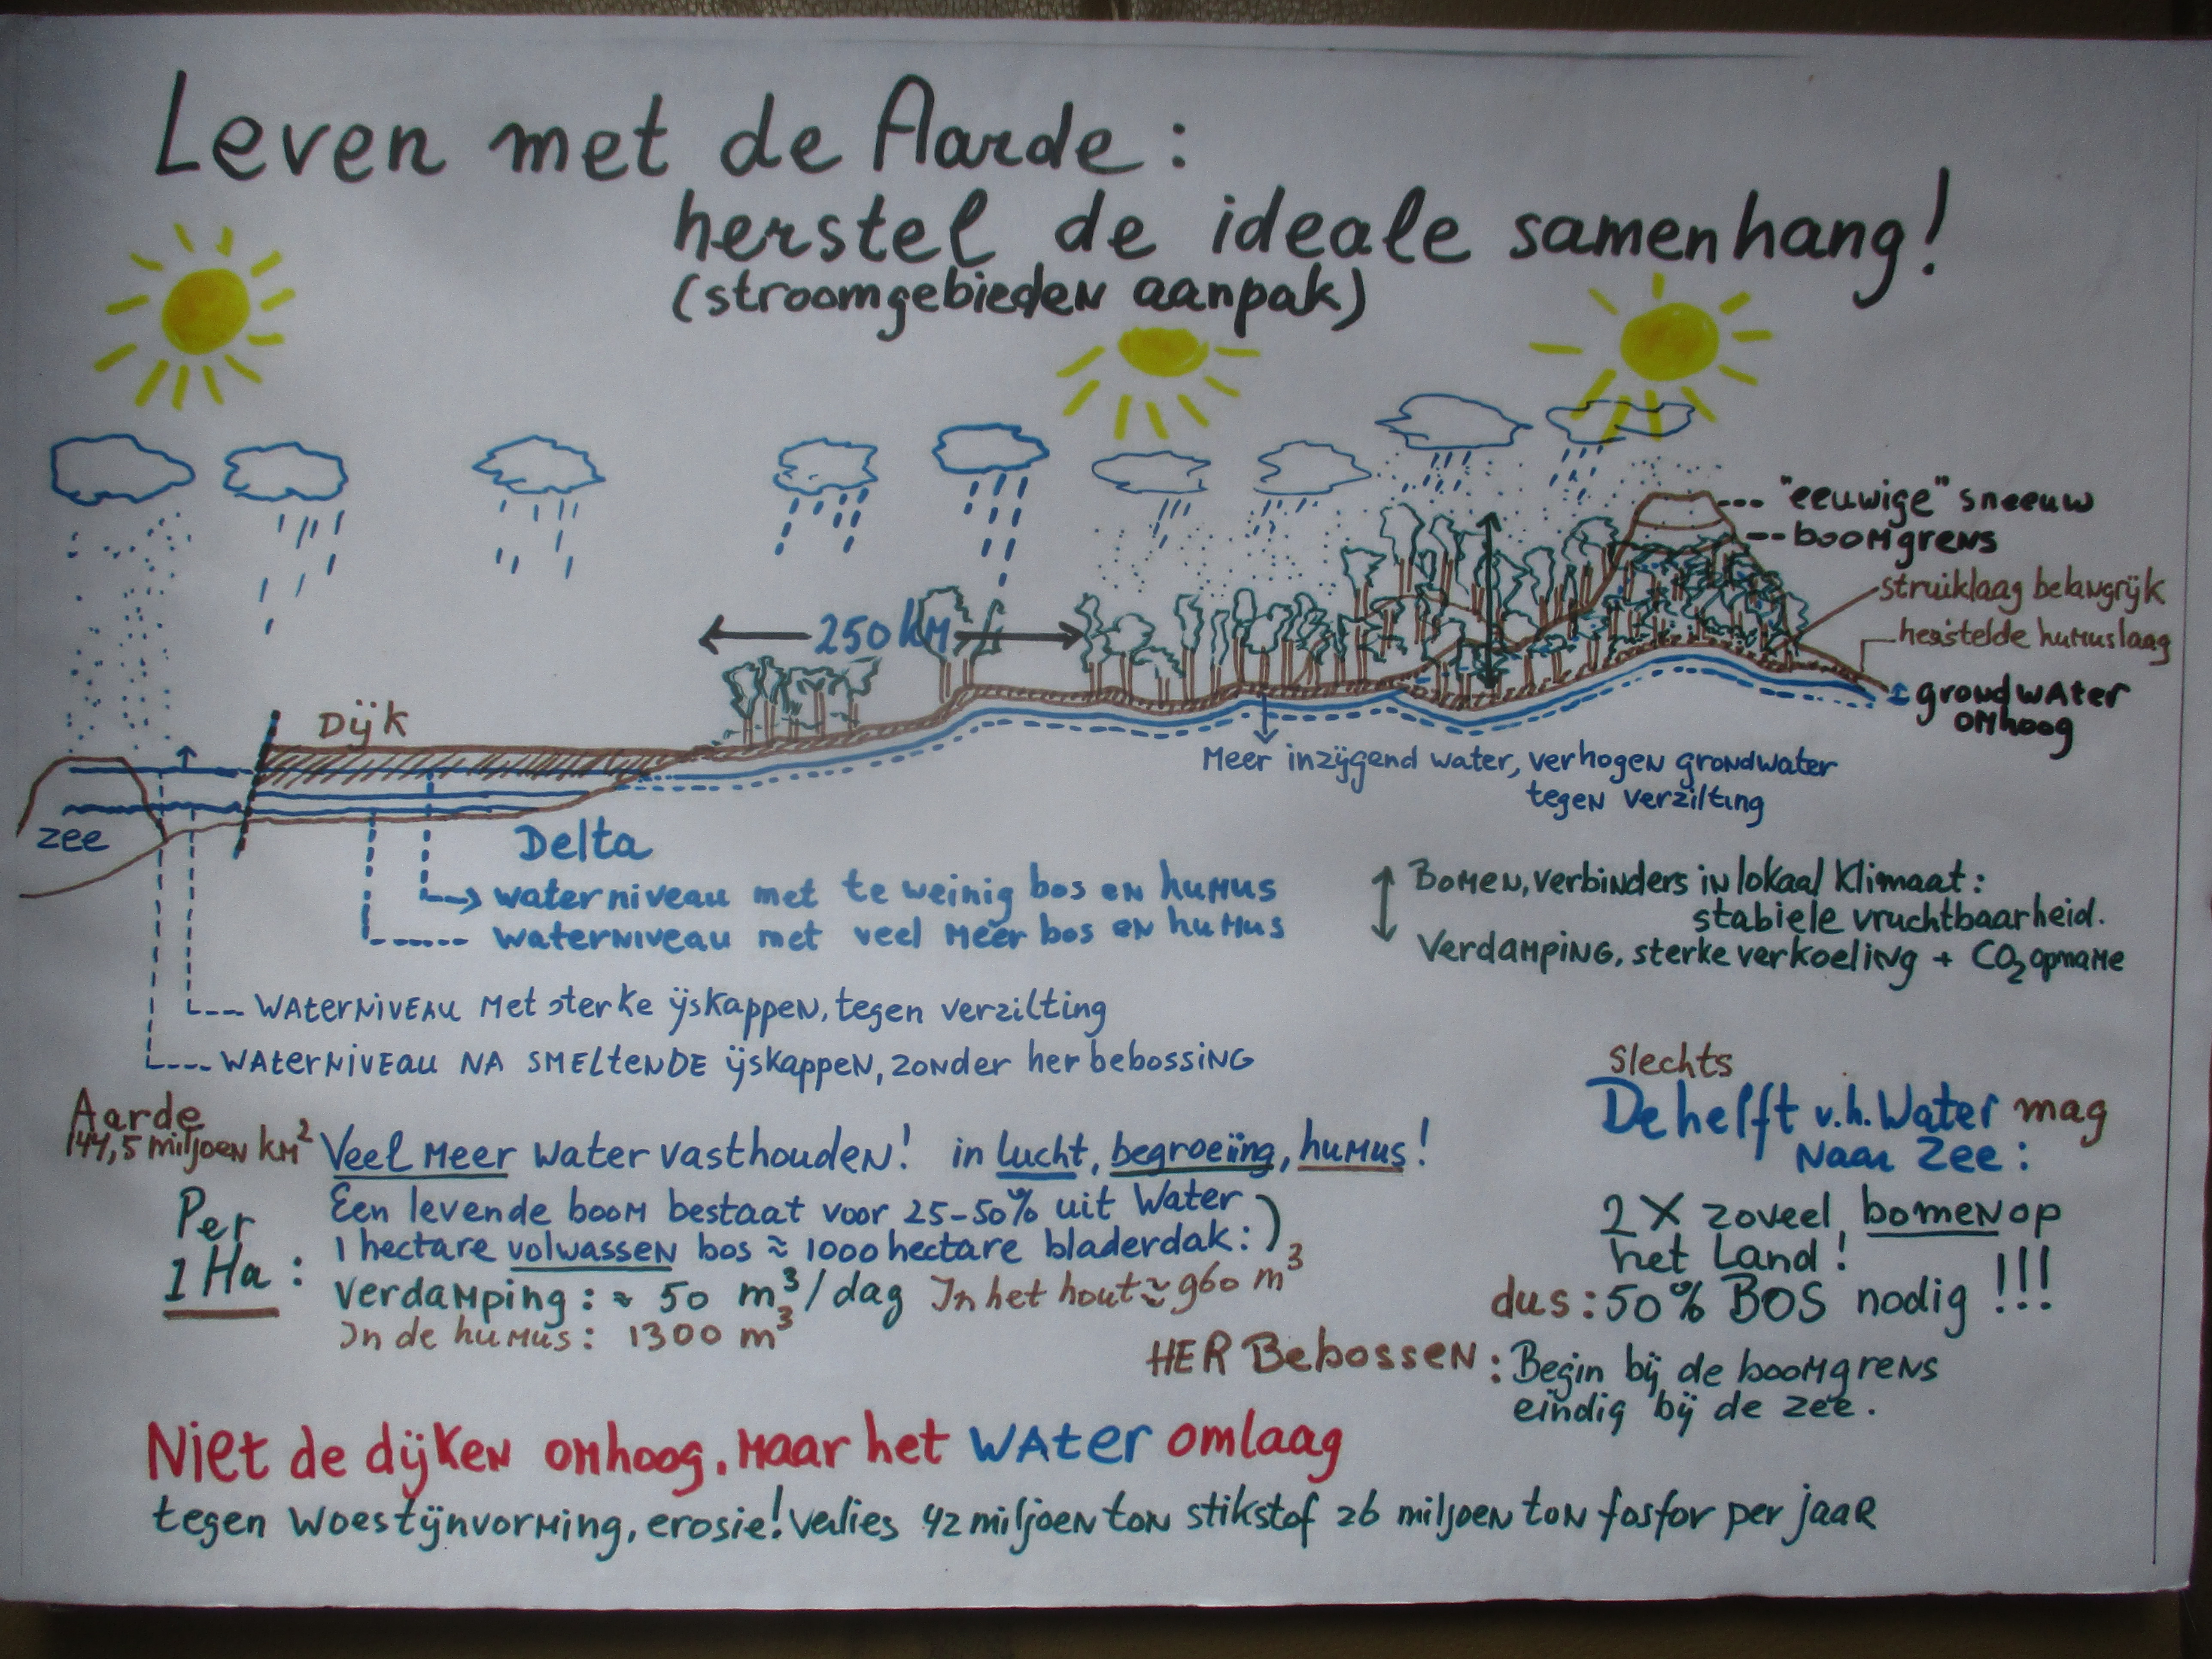 Leven met de Aarde:
herstel de ideale samenhang!
(stroomgebieden aanpak)
"eeuwige" sneeuw
boomgrens
struiklaag belangrijk
herstelde humuslaag
grondwater
omhoog
250 km
Dijk
Meer inzijgend water, verhogen grondwater
tegen verzilting
zee
Delta
waterniveau met te weinig bos en humus
waterniveau met veel meer bos en humus
Bomen, verbinders in lokaal klimaat:
stabiele vruchtbaarheid.
Verdamping, sterke verkoeling + CO2 opname
waterniveau met sterke ijskappen, tegen verzilting
waterniveau na smeltende ijskappen, zonder herbebossing
Slechts
De helft v.h. Water mag
naar zee:
Aarde
144,5 miljoen km²
Veel meer water vasthouden! in lucht, begroeiing, humus!
Per
1 Ha:
Een levende boom bestaat voor 25-50% uit water
1 hectare volwassen bos ≈ 1000 hectare bladerdak:)
verdamping: ≈ 50 m³/dag In het hout ≈ 960 m³
In de humus: 1300 m³
2 X zoveel bomen op
het land!
dus: 50% BOS nodig !!!
HER Bebossen: Begin bij de boomgrens
eindig bij de zee.
Niet de dijken omhoog, maar het water omlaag
tegen woestijnvorming, erosie! Verlies 42 miljoen ton stikstof 26 miljoen ton fosfor per jaar